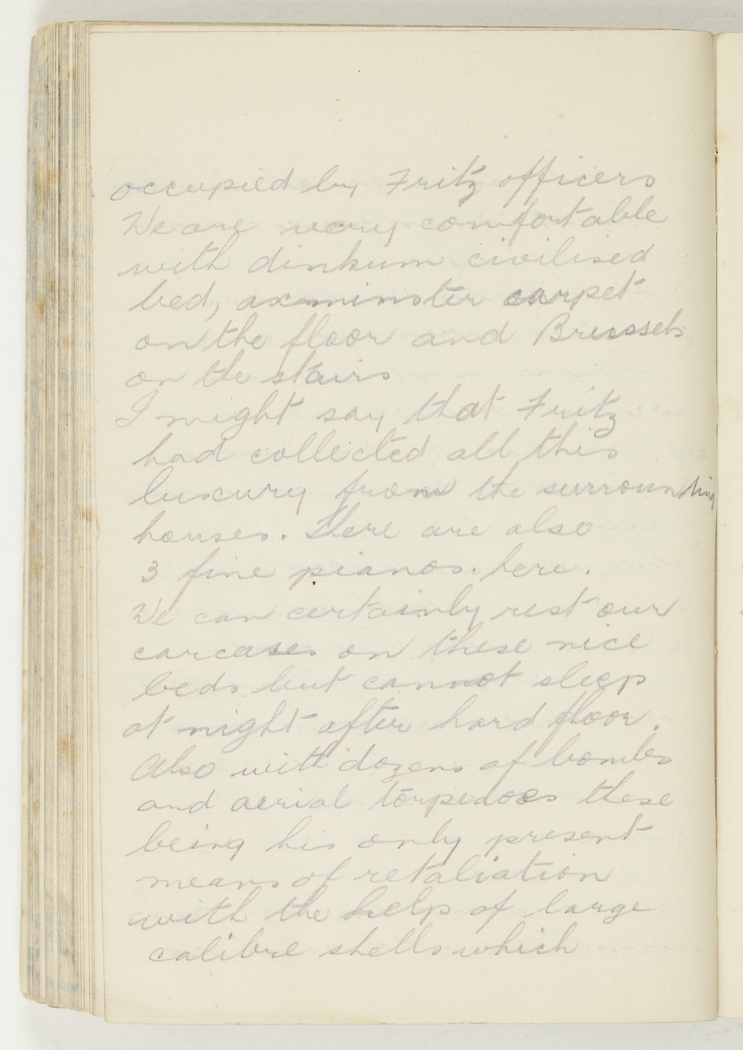 occupied by Fritz officers
We are very comfortable
with dinkum civilised
bed, axminster carpet
on the floor and Brussels
on the stairs
I might say that Fritz
had collected all this
luxury from the surrounding
houses. There are also
3 fine pianos here.
We can certainly rest our
carcases on these nice
beds but cannot sleep
at night after hard floor.
Also with dozens of bombs
and aerial torpedoes these
being his only present
means of retaliation
with the help of large
calibre shells which